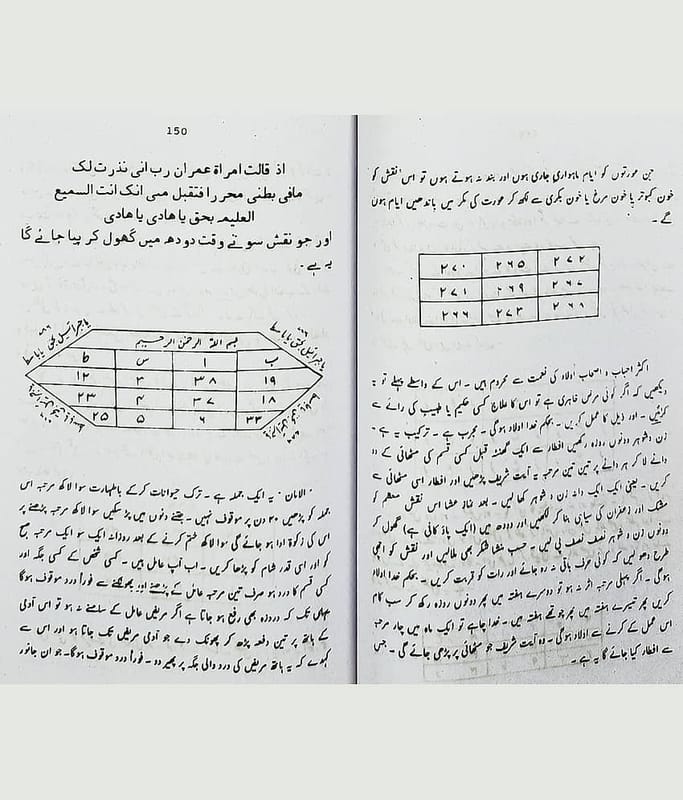 جن عورتوں کو ایام ماہواری جاری ہوں اور بند نہ ہوتے ہوں تو اس نقش کو
خون کبوتر یا خون مرغ یا خون بکری سے لکھ کر عورت کی کمر میں باندھیں ایام بند ہوں
گے۔
۲۷۰ ۲۶۵ ۲۷۲
۲۷۱ ۲۶۹ ۲۶۷
۲۶۶ ۲۷۳ ۲۶۸
اکثر احباب و اصحاب اولاد کی نعمت سے محروم ہیں۔ اس کے واسطے پہلے تو یہ
دیکھیں کہ اگر کوئی مرض ظاہری ہے تو اس کا علاج کسی حکیم یا طبیب کی رائے سے
کرائیں۔ اور ذیل کا عمل کریں۔ بحکم خدا اولاد ہوگی۔ مجرب ہے۔ ترکیب یہ ہے۔
زن و شوہر دونوں روزہ رکھیں افطار سے ایک گھنٹہ قبل کسی قسم کی مٹھائی کے دو
دانے لا کر ہر دانے پر تین تین مرتبہ یہ آیت شریف پڑھیں اور افطار اسی مٹھائی سے
کریں۔ یعنی ایک ایک دانہ زن و شوہر کھا لیں۔ بعد نماز عشا اس نقش معظم کو
مشک اور زعفران کی سیاہی بنا کر لکھیں اور دودھ میں (ایک پاؤ کافی ہے) گھول کر
دونوں زن و شوہر نصف نصف پی لیں۔ حسب منشا شکر بھی ملالیں اور نقش کو اچھی
طرح دھو لیں کہ کوئی حرف باقی نہ رہ جائے اور رات کو قربت کریں۔ بحکم خدا اولاد
ہوگی۔ اگر پہلی مرتبہ اثر نہ ہو تو دوسرے ہفتہ میں پھر دونوں روزہ رکھ کر سب کام
کریں پھر تیسرے ہفتہ میں پھر چوتھے ہفتہ میں۔ خدا چاہے تو ایک ماہ میں چار مرتبہ
اس عمل کے کرنے سے اولاد ہوگی۔ وہ آیت شریف جو مٹھائی پر پڑھی جائے گی۔ جس
سے افطار کیا جائے گا یہ ہے۔
150
اذ قالت امراۃ عمران رب انی نذرت لک
مافی بطنی محررا فتقبل منی انک انت السمیع
العلیم بحق یا ھادی یا ھادی
اور جو نقش سوتے وقت دودھ میں گھول کر پیا جائے گا
یہ ہے۔
بسم اللہ الرحمن الرحیم
ب ا س ط
۱۹ ۳۸ ۳ ۱۲
۱۸ ۳۷ ۴ ۲۳
۳۳ ۶ ۵ ۲۵
الامان۔ یہ ایک جملہ ہے۔ ترک حیوانات کرکے باطہارت سوا لاکھ مرتبہ اس
جملہ کو پڑھیں ۳۰ دن پر موقوف نہیں۔ جتنے دنوں میں پڑھ سکیں سوا لاکھ مرتبہ پڑھنے پر
اس کی زکوۃ ادا ہو جائے گی سوا لاکھ ختم کرنے کے بعد روزانہ ایک سو ایک مرتبہ صبح
کو اور اسی قدر شام کو پڑھا کریں۔ اب آپ عامل ہیں۔ کسی شخص کے کسی جگہ اور
کسی قسم کا درد ہو صرف تین مرتبہ عامل کے پڑھنے اور پھونکنے سے فوراً درد موقوف ہوگا
یہاں تک کہ دردزہ بھی رفع ہو جاتا ہے اگر مریض عامل کے سامنے نہ ہو تو اس آدمی
کے ہاتھ پر تین دفعہ پڑھ کر پھونک دے جو آدمی مریض تک جاتا ہو اور اس سے
کہدے کہ یہ ہاتھ مریض کی درد والی جگہ پر پھیر دو۔ فوراً درد موقوف ہوگا۔ جو ان جانور